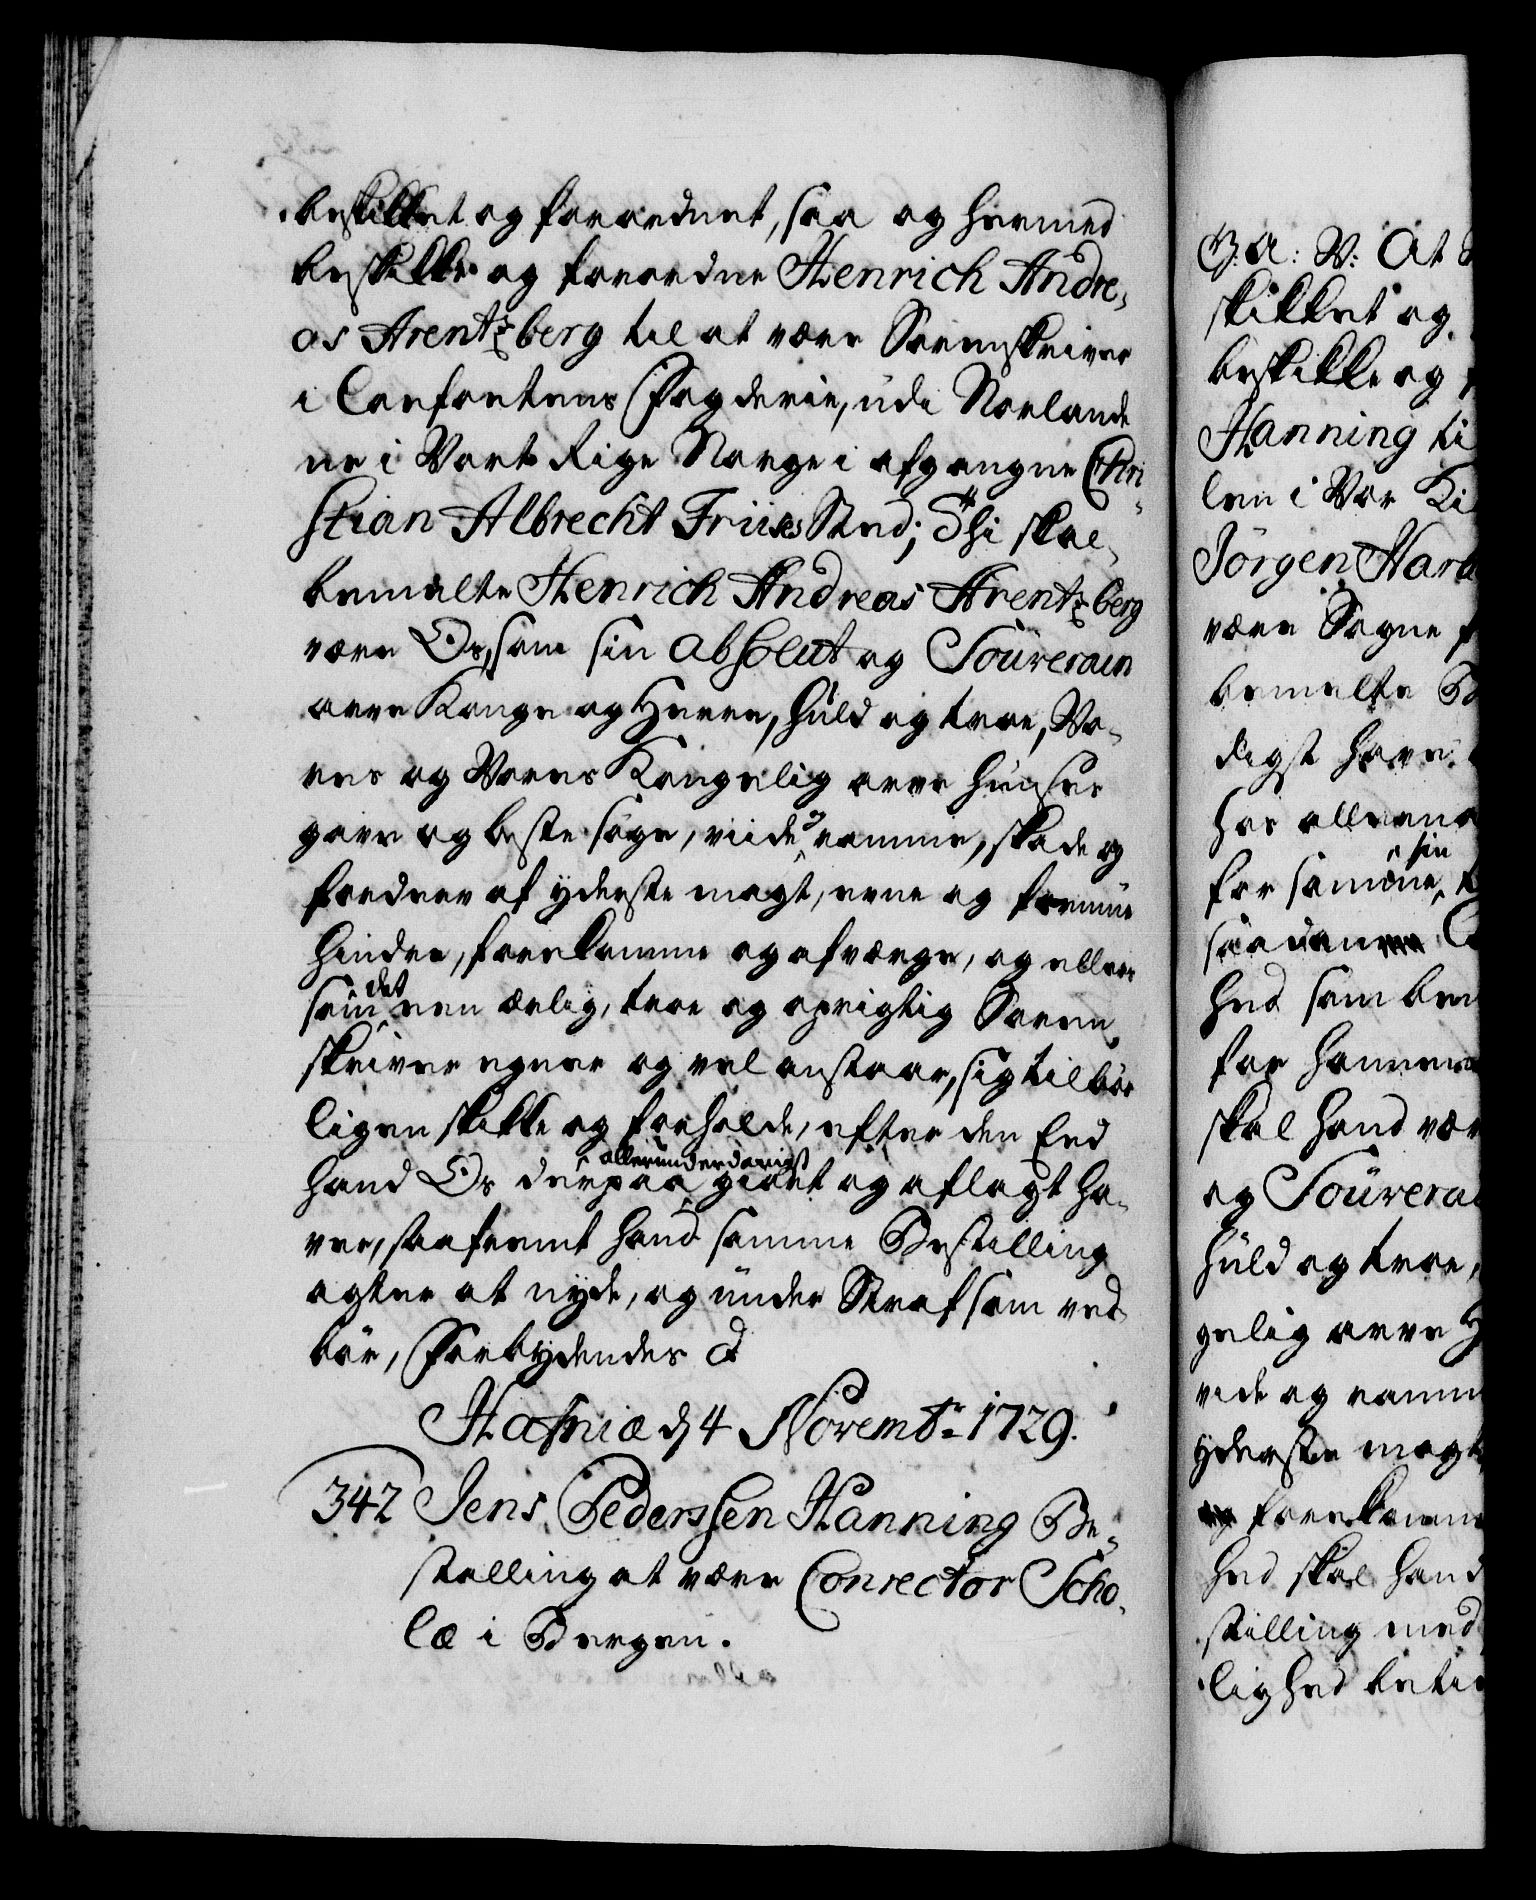 beskikket og forordnet, saa og hermed
beskikke og forordne Henrich Andre,
as Arentzberg til at være Sorenskriver
i Lofoetens Fogderie, udi Norlande
ne i Vort Rige Norge i afgangne Chri,
stian Albrecht Friises Sted; Thi skal,
bemelte Henrich Andreas Arentzberg
være Os, som sin absolut og Souverain
arve Konge og Herre, huld og troe, Vo,
res og Vores Kongelig arve Huuses
gavn og beste søge, viide og ramme, skade og
fordærv af yderste magt, evne og formue
hindre, forekomme og afværge, og ellers
som det een ærlig, troe og oprigtig Soren,
skriver egner og vel anstaar, sig tilbør
ligen skikke og forholde, efter den Eed
hand Os derpaa allerunderdanigst giort og aflagt ha,
ver, saafremt hand samme Bestilling
agter at nyde, og under Straf som ved
bør, Forbydendes &
Hafniæ d 4 Novembr 1729.
342 Jens Pederssen Hanning Be,
stelling at være Conrector Scho,
læ i Bergen.
G: A: V: At
skikket og
beskikke og
Hanning ti
len i Vor Ki
Jørgen Hard
være Sogne
bemelte
digst have
hos allerna
for samme sin
saadanne
hed som bem
for hannem
skal hand vær
og Souverai
huld og troe,
gelig arve H
vide og ramm
yderste magt
forekomme
hed skal hand
stilling med
lighed betie